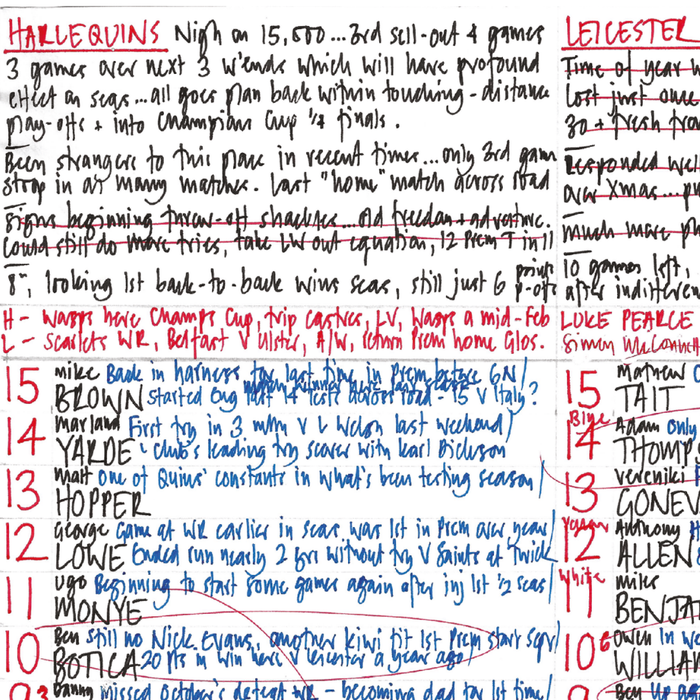 HARLEQUINS Nigh on 15,000...3rd sell-out 4 games
3 games over next 3 w'ends which will have profound
effect on seas...all goes plan back within touching-distance
play-offs + into Champions Cup 1/4 finals.
Been strangers to this place in recent times...only 3rd game
Stoop in as many matches. Last "home" match across road
Signs beginning throw-off shackles...old freedom + adventure.
Could still do more tries, take LW out equation, 12 Prem T in 11
8th, looking 1st back-to-back wins seas, still just 6 points p-offs
H - Wasps here Champs Cup, trip Castres, LV, Wasps a mid-Feb
L - Scarlets WR, Belfast V Ulster, A/W, return Prem home Glos.
15 Mike BROWN Back in harness for last time in Prem before 6N/
started Eng last 14 Tests across road - 15 V Italy?
14 Marland YARDE First try in 3 mths V L Welsh last weekend/
club's leading try scorer with Karl Dickson
13 Matt HOPPER one of Quins' constants in what's been testing season/
12 George LOWE Game at WR earlier in seas was 1st in Prem over year/
Ended run nearly 2 yrs without try V Saints at Twick
11 Ugo MONYE Beginning to start some games again after inj 1st 1/2 seas/
10 Ben BOTICA still no Nick Evans, another kiwi fit 1st Prem start
20 pts in win here V Leicester a year ago
Danny missed October's defeat WR - becoming dad for 1st time/
LEICESTER
Time of year
Lost just once
30 + fresh from
Responded well
over Xmas...
much more
10 games left,
after indifferen
LUKE PEARCE
Simon McConnell
15 Mathew TAIT
Blue
14 Adam THOMPS Only
13 Vereniki GONEV
12 Anthony ALLEN
White
11 Miles BENJA
10 Owen WILLIA
Ben